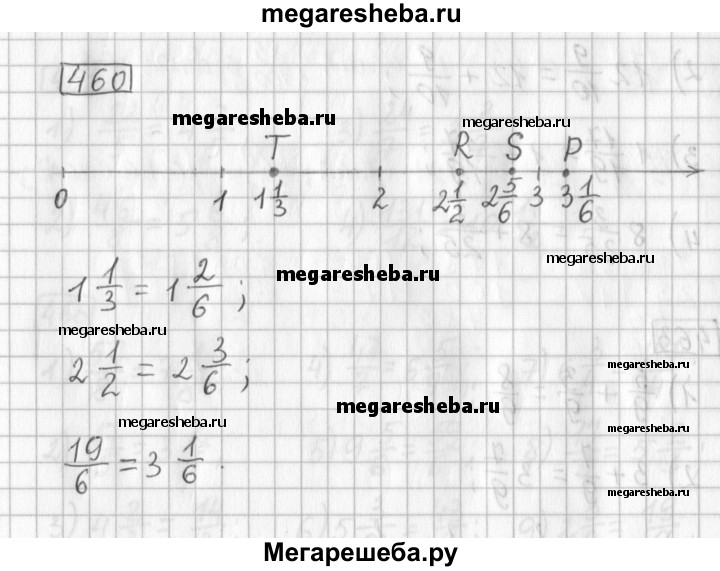 megaresheba.ru
460
megaresheba.ru
megaresheba.ru
T R S P
0 1 1 1/3 2 2 1/2 2 5/6 3 3 1/6
megaresheba.ru
1 1/3 = 1 2/6 ;
megaresheba.ru
megaresheba.ru
2 1/2 = 2 3/6 ;
megaresheba.ru
megaresheba.ru
megaresheba.ru
megaresheba.ru
19/6 = 3 1/6 .
megaresheba.ru
Мегарешеба.ру